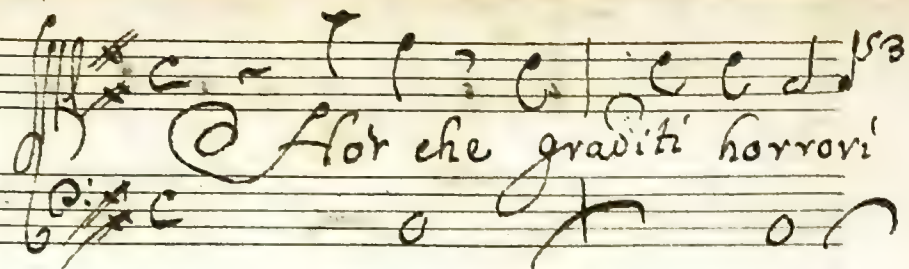 153
Hor che graditi horrori